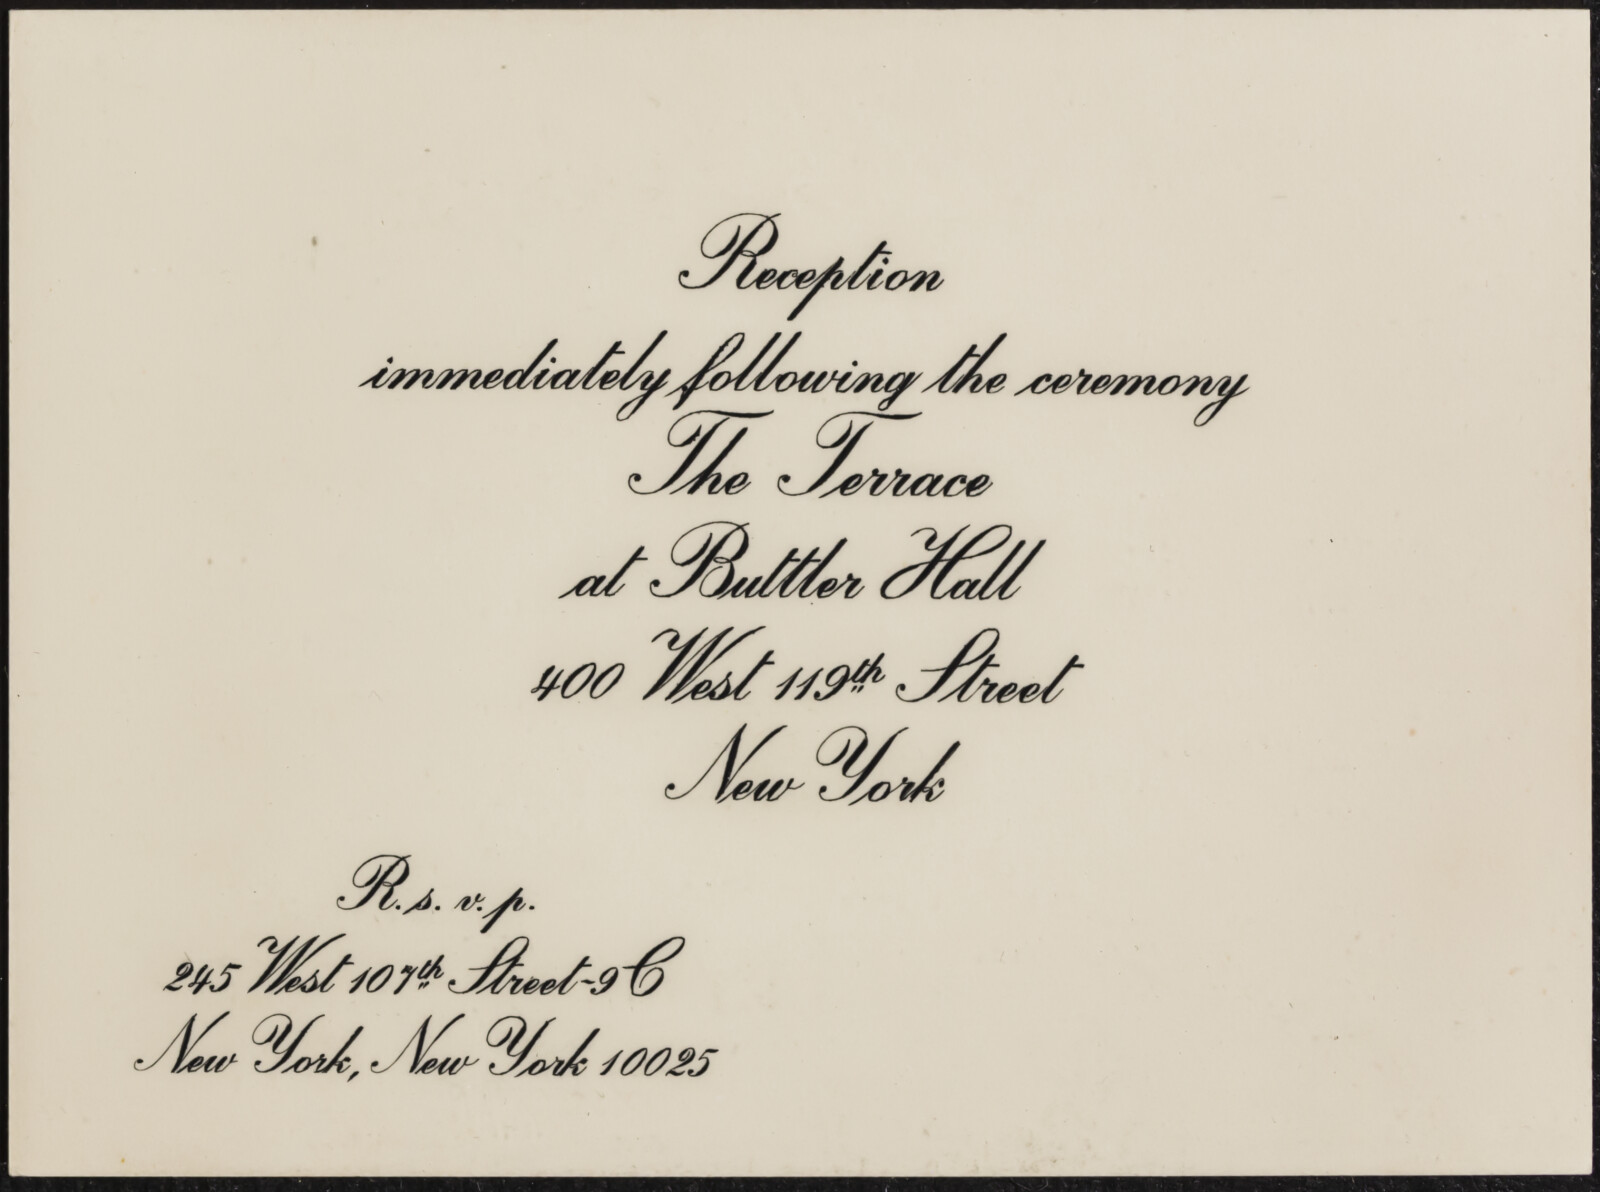 Reception
immediately following the ceremony
The Terrace
at Buttler Hall
400 West 119th Street
New York
R. s. v. p.
245 West 107th Street-9C
New York, New York 10025